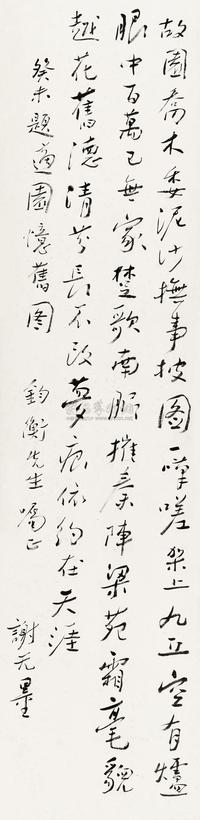 故園喬木委泥沙撫事披圖一嘆嗟架上九丘空有燼
眼中百萬已無家楚歌南服摧秦陣梁苑霜毫貌
越花舊德清芬長不改夢痕依約在天涯
癸未題適園憶舊图 鈞衡先生囑正 謝无量